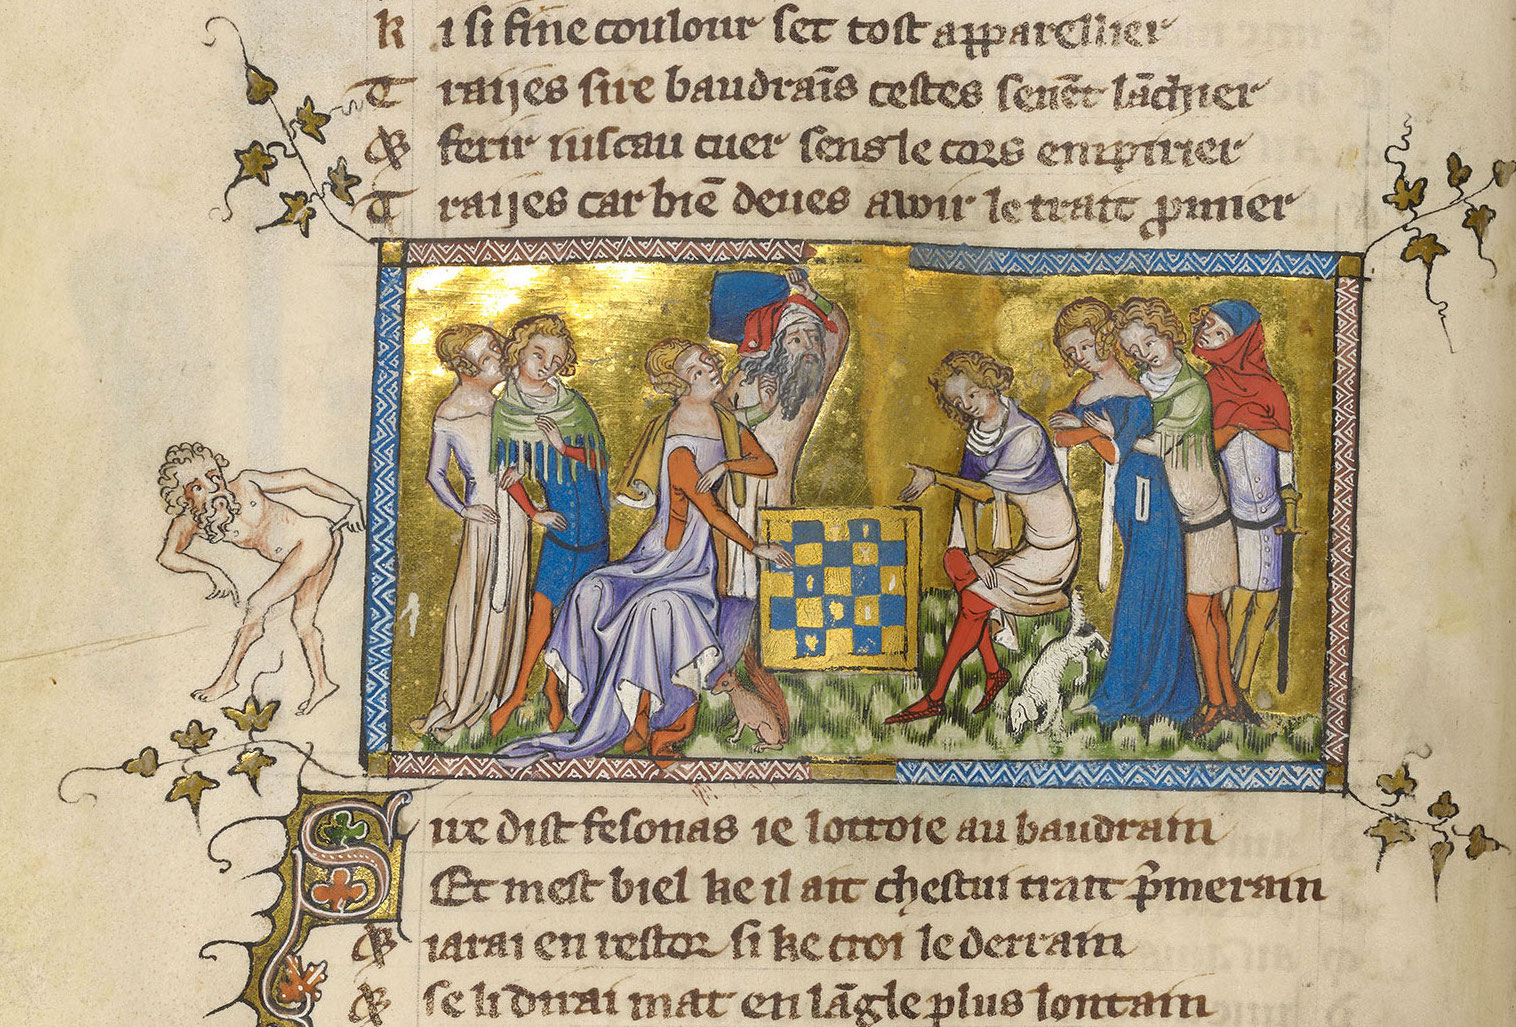 ki si fine coulour set tost apparellier
Traijes sire baudraīs cestes senēt lāchier
& ferir iuscau cuer sens le cors empirier
Traijes car biē deues awir le trait p̄mier
Sire dist fesonas ie lottoie au baudrain
Et mest biel ke il ait chestui trait p̄merain
& iarai en restor si ke croi le derrain
& se li dirai mat en lāgle plus lontain